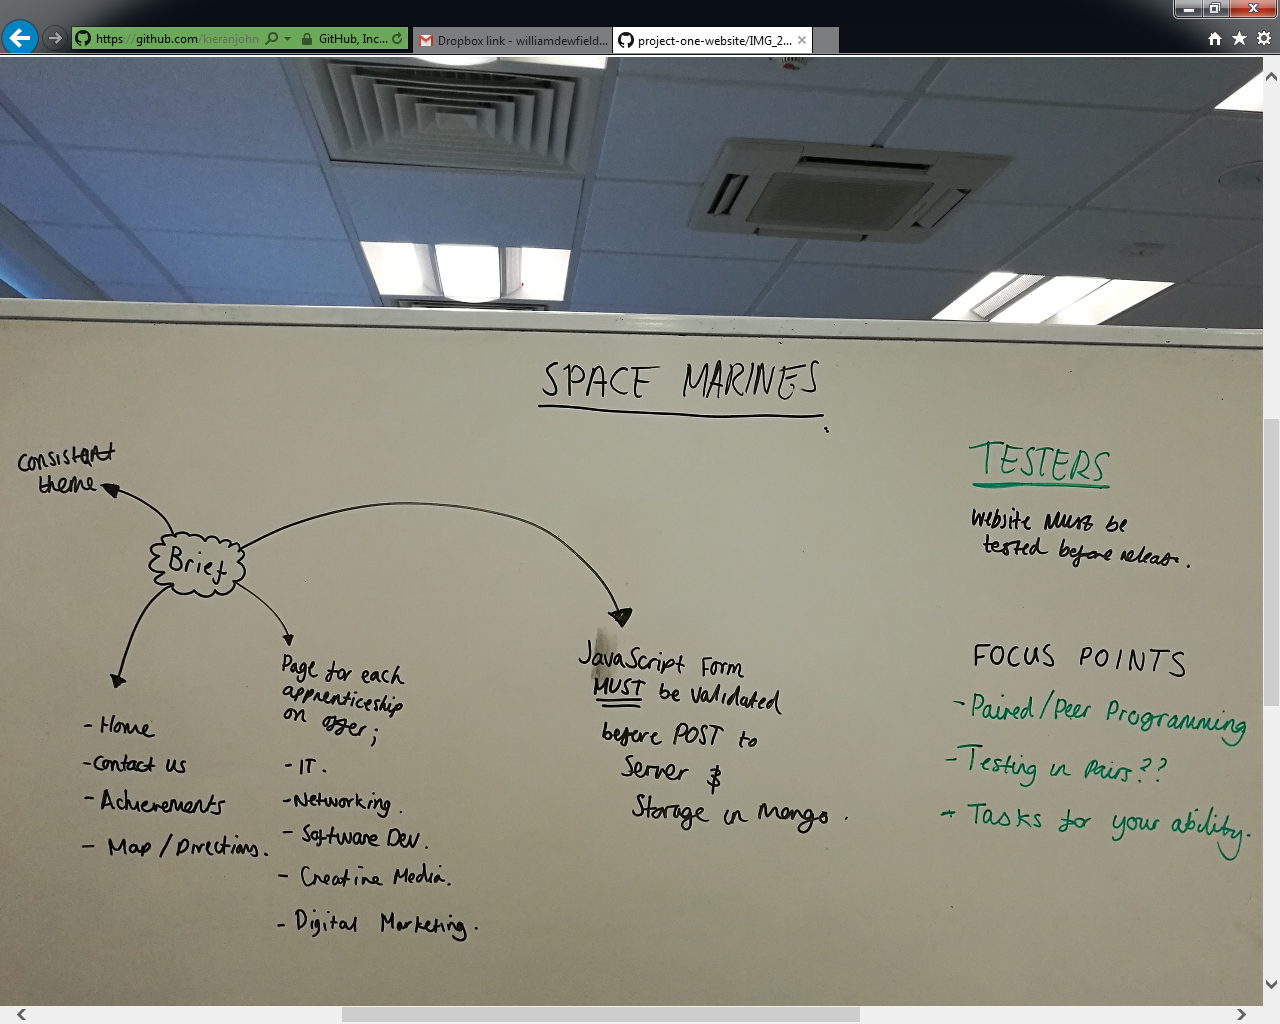 https://github.com/kieranjohn
GitHub, Inc...
Dropbox link - williamdewfield...
project-one-website/IMG_2...
SPACE MARINES
Consistant
theme
Brief
- Home
- Contact us
- Achievements
- Map / Directions.
Page for each
apprenticeship
on offer;
- IT.
- Networking.
- Software Dev.
- Creative Media.
- Digital Marketing.
JavaScript Form
MUST be validated
before POST to
Server &
Storage in Mongo.
TESTERS
Website MUST be
tested before release.
FOCUS POINTS
- Paired/Peer Programming
- Testing in pairs??
- Tasks for your ability.